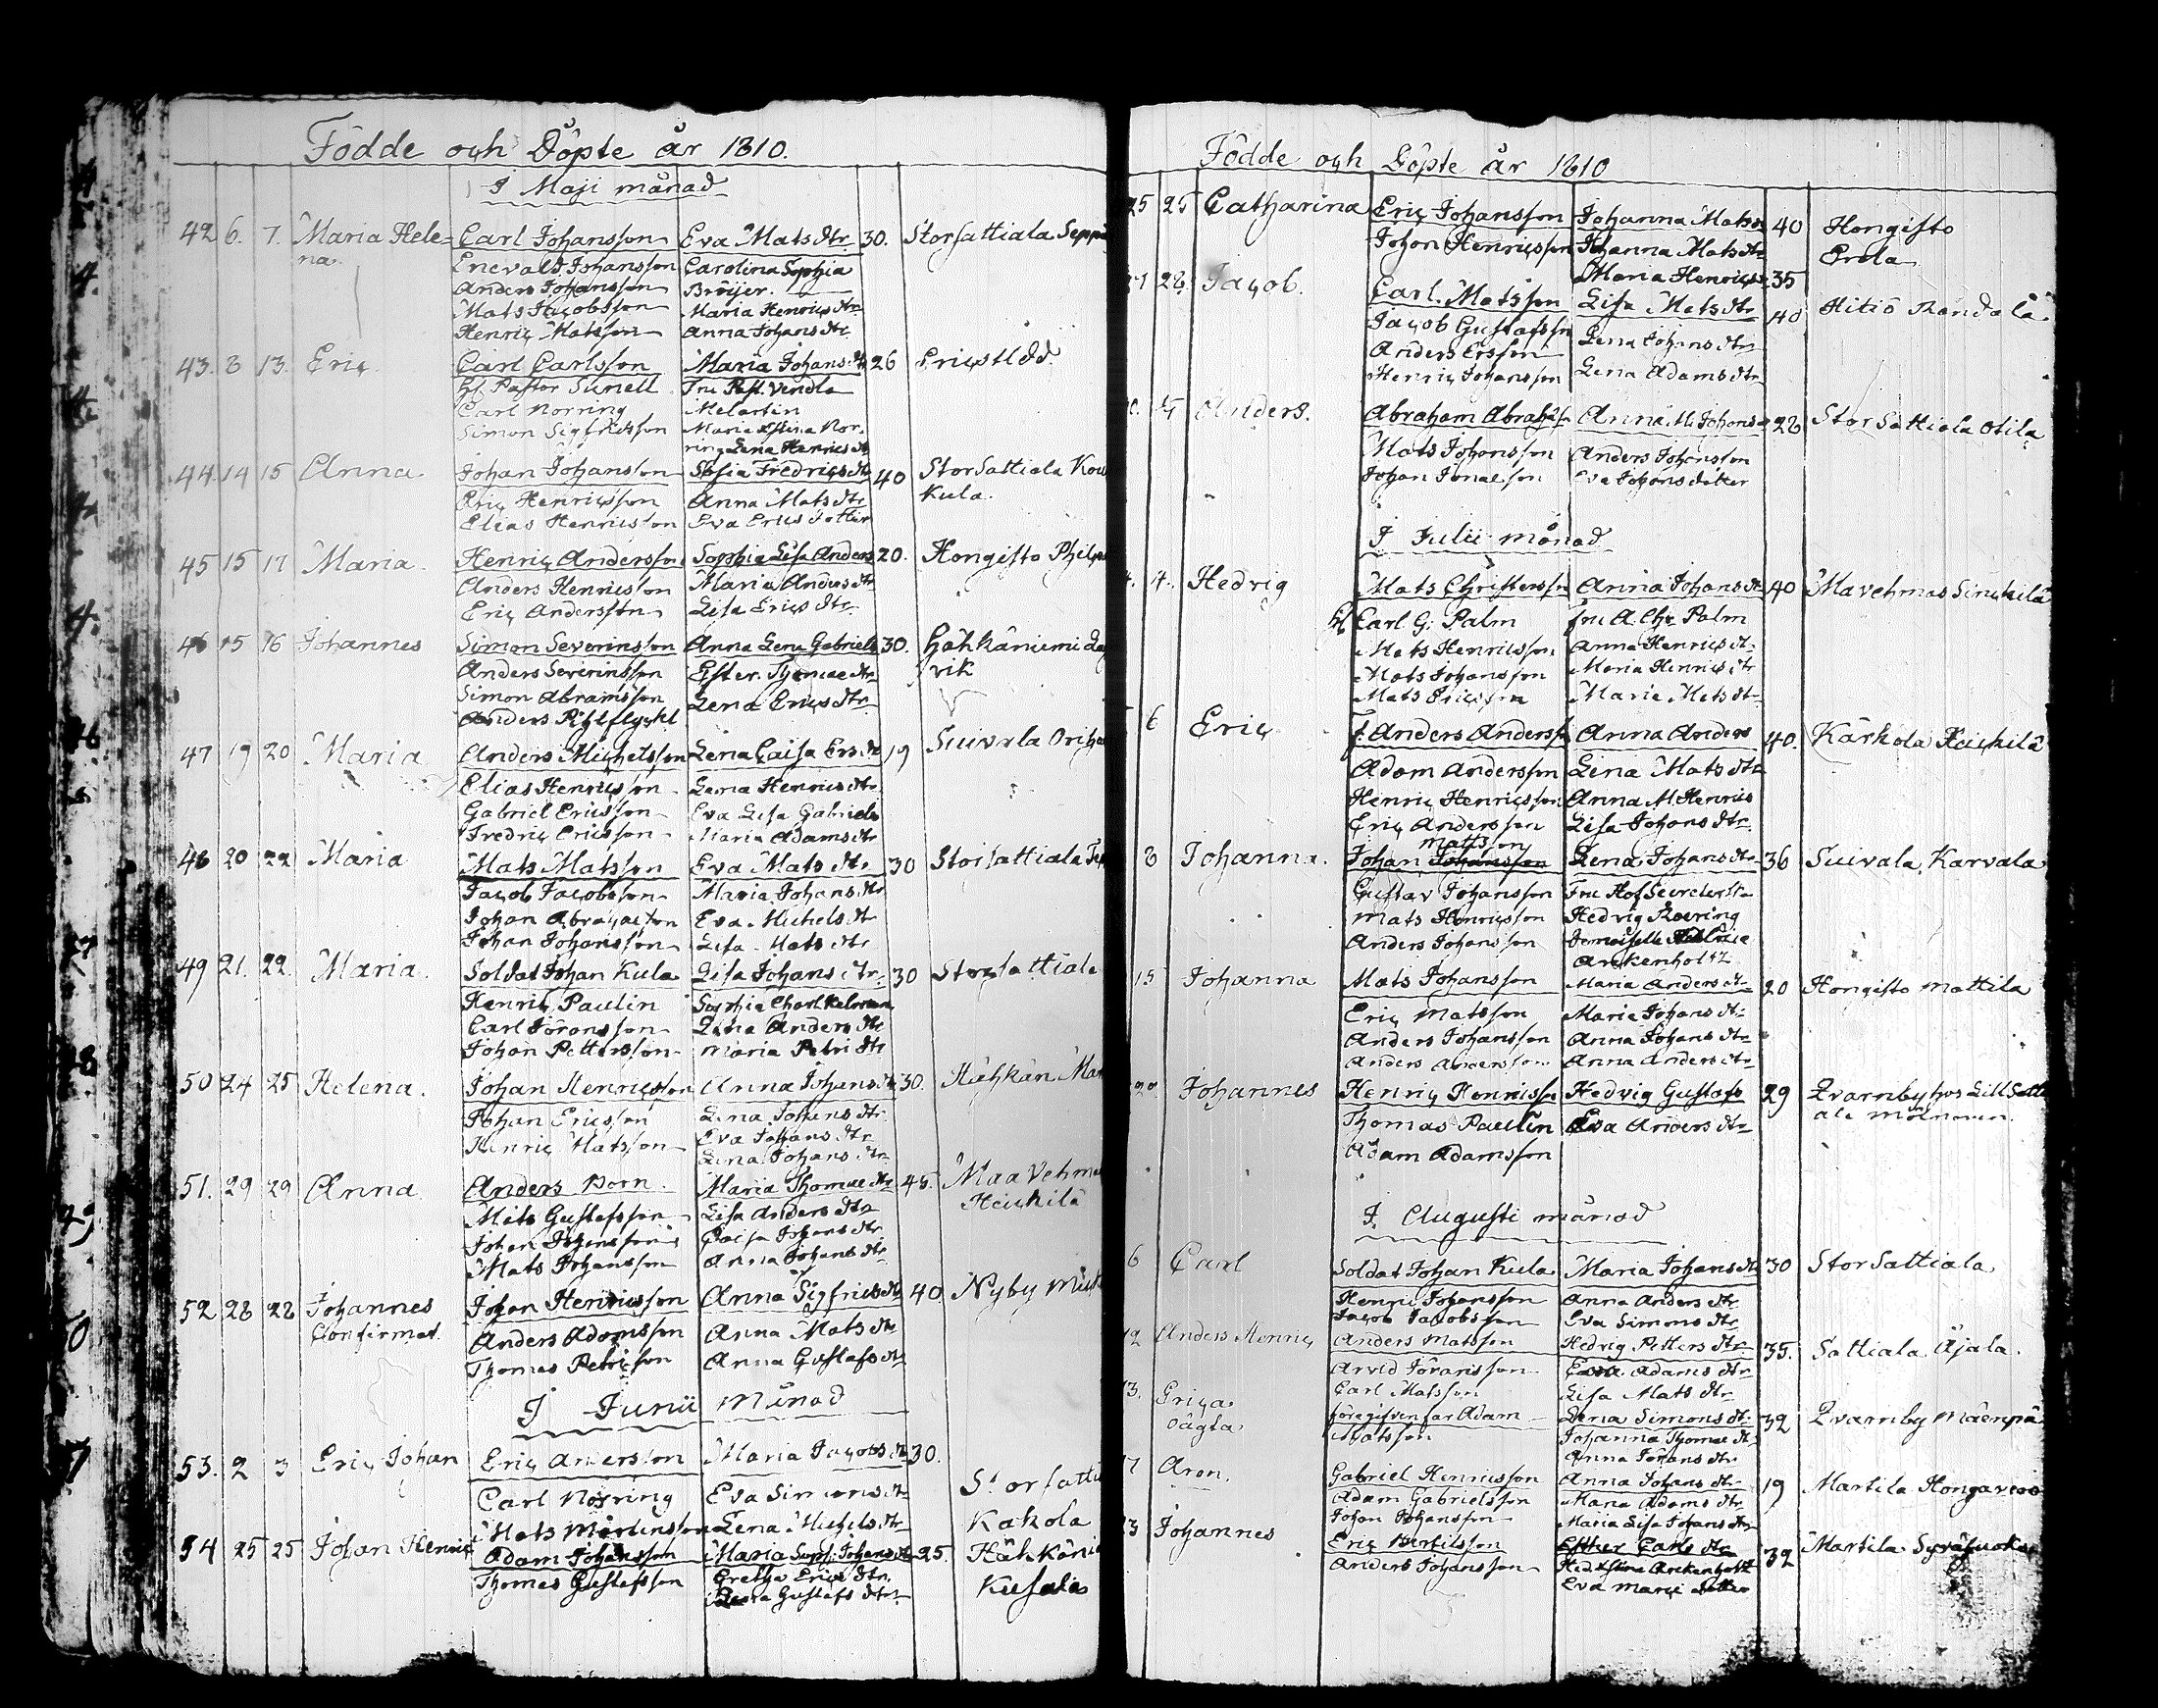 Födde och Döpte år 1810.
I Maji månad
42 6. 7. Maria Hele= Carl Johansson Eva Mats dtr. 30. Storsattiala Seppä
na. Enevald Johansson Carolina Sophia
Anders Johansson Bröijer.
Mats Jacobsson Maria Henrics dtr
Henric Matsson Anna Johans dtr
43. 8 13. Eric Carl Carlsson Maria Johans dtr 26 Ericstedd
H. Pastor Sunell Fru Past. Vendla
Carl Norring Melartin
Simon Sigfridsson Maria Stina Nor-
ring Lena Henrics dtr
44. 14 15 Anna Johan Johansson Sofia Fredrics dtr 40 Storsattiala Kou
Eric Henricsson Anna Mats dtr Kula.
Elias Henricsson Eva Erics dotter
45 15 17 Maria. Henric Andersson Sophia Lisa Anders 20. Hongisto Philp
Anders Henricsson Maria Anders dtr
Eric Andersson Lisa Erics dtr
46 15 16 Johannes Simon Severinsson Anna Lena Gabriels 30. Hähkäniemi La
Anders Severinsson Ester Thomae dtr vik
Simon Abramsson Lena Erics dtr
Anders Pihlflyckt
47 19 20 Maria Anders Michelsson Lena Caisa Ers dtr 19 Suivala
Elias Henricsson Lena Henrics dtr
Gabriel Ericsson Eva Lisa Gabriels
Fredric Ericsson Maria Adams dtr
48 20 22 Maria Mats Matsson Eva Mats dtr 30 Storsattiala
Jacob Jacobsson Maria Johans dtr
Johan Eva Michels dtr
Johan Johansson Lisa Mats dtr
49 21. 22. Maria. Soldat Johan Kula Lisa Johans dtr. 30 Storsattiala
Henric Paulin Sophia Charl
Carl Jöransson Lena Anders dtr
Johan Pettersson Maria Petri dtr
50 24 25 Helena. Johan Henricsson Anna Johans dtr 30. Hähkän. Mar
Johan Ericsson Lena Johans dtr
Henric Matsson Eva Johans dtr
Lena Johans dtr
51. 29 29 Anna Anders Dorn. Maria Thomae dtr 45. Maavehma
Mats Gustafsson Lisa Anders dtr Heickilä
Johan Johansson Caisa Johans dtr
Mats Johansson Anna Johans dtr
52 28 28 Johannes Johan Henricsson Anna Sigfrids dtr 40. Nyby
Confirmat. Anders Adamsson Anna Mats dtr
Thomas Petrisson Anna Gustafs dtr
I Junii Månad
53. 2 3 Eric Johan Eric Andersson Maria Jacobs dtr 30.
Carl Norring Eva Simons dtr Storsatti
Mats Mårtensson Lena Michels dtr Kakola
54 25 25 Johan Henric Adam Johansson Maria Soph. Johans dtr 25. Hähkäni
Thomas Gustafsson Gretha Erics dtr. Kusala
Lena Gustafs dtr
Födde och Döpte år 1810
25 25 Catharina Eric Johansson Johanna Mats 40 Hongisto
Johan Henricsson Johanna Mats dtr Erola
Maria Henrics 35
28. Jacob. Carl. Matsson Lisa Mats dtr 40 Hitiö Randala
Jacob Gustafsson
Anders Ersson Lena Johans dtr
Henric Johansson Lena Adams dtr
Anders. Abraham Abrahs Anna M. Johans 28 Storsattiala Otila
Mats Johansson Anders Johansson
Johan Jonaesson Eva Johans dotter
I Julii månad
4. Hedvig Mats Christersson Anna Johans dtr 40 Mavehmas Sinckilä
H. Carl G. Palm fru A. Chr. Palm
Mats Henricsson Anna Henrics dtr
Mats Johansson Maria Henrics dtr
Mats Ericsson Maria Mats dtr
6 Eric f. Anders Andersson Anna Anders 40. Kärkola Heickilä
Adam Andersson Lena Mats dtr
Henric Henricsson Anna M. Henrics
Eric Andersson Lisa Johans dtr
Matsson
8 Johanna. Johan Johansson Lena Johans dtr 36 Suivala Karvala
Gustav Johansson Fru Hof Secreter
Mats Henricsson Hedvig Roering
Anders Johansson Demoiselle
Arckenholtz
15 Johanna Mats Johansson Maria Anders dtr 20 Hongisto Mattila
Eric Matsson Maria Johans dtr
Anders Johansson Anna Johans dtr
Anders Andersson Anna Anders dtr
Johannes Henric Henricsson Hedvig Gustafs 29 Qvarnby hos Lill Satti
Thomas Paulin Eva Anders dtr ala
Adam Adamsson
I Augusti månad
6 Carl Soldat Johan Kula Maria Johans dtr 30 Storsattiala
Henric Johansson Anna Anders dtr
Jacob Jacobsson Eva Simons dtr
12 Anders Henric Anders Matsson Hedvig Petters dtr 35. Sattiala Äjala.
Arvid Jöransson Eva Adams dtr
13. Carl Matsson Lisa Mats dtr
Oägta föregifven far Adam Lena Simons dtr 32 Qvarnby Mäenpä
Matsson Johanna Thomae dtr
Anna Jörans dtr
17 Aron. Gabriel Henricsson Anna Johans dtr 19 Martila Hongavero
Adam Gabrielsson Maria Adams dtr
Johan Johansson Maria Lisa Johans dtr
23 Johannes Eric Bertilsson Esther Carls dtr 32 Martila
Anders Johansson Hed. Stina Arckenholtz
Eva Marci dotter